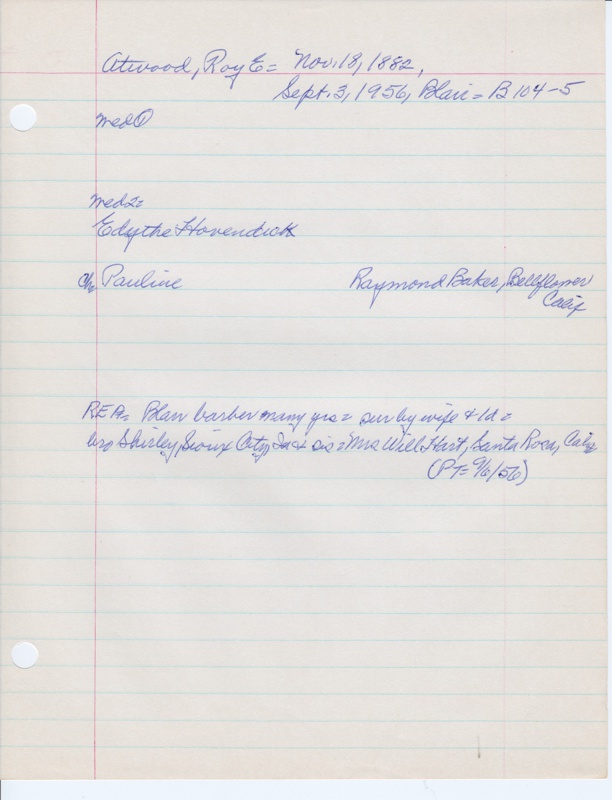 Atwood, Roy E = Nov. 18, 1882,
Sept. 3, 1956, Blair = B 104-5
med ①
med 2=
Edythe Hovendick
Pauline Raymond Baker, Bellflower
Calif
REA= Blair barber many yrs = sur by wife & 1d =
bro Shirley, Sioux City, sis = Mrs Will Hart, Santa Rosa, Calif
(PT= 9/6/56)